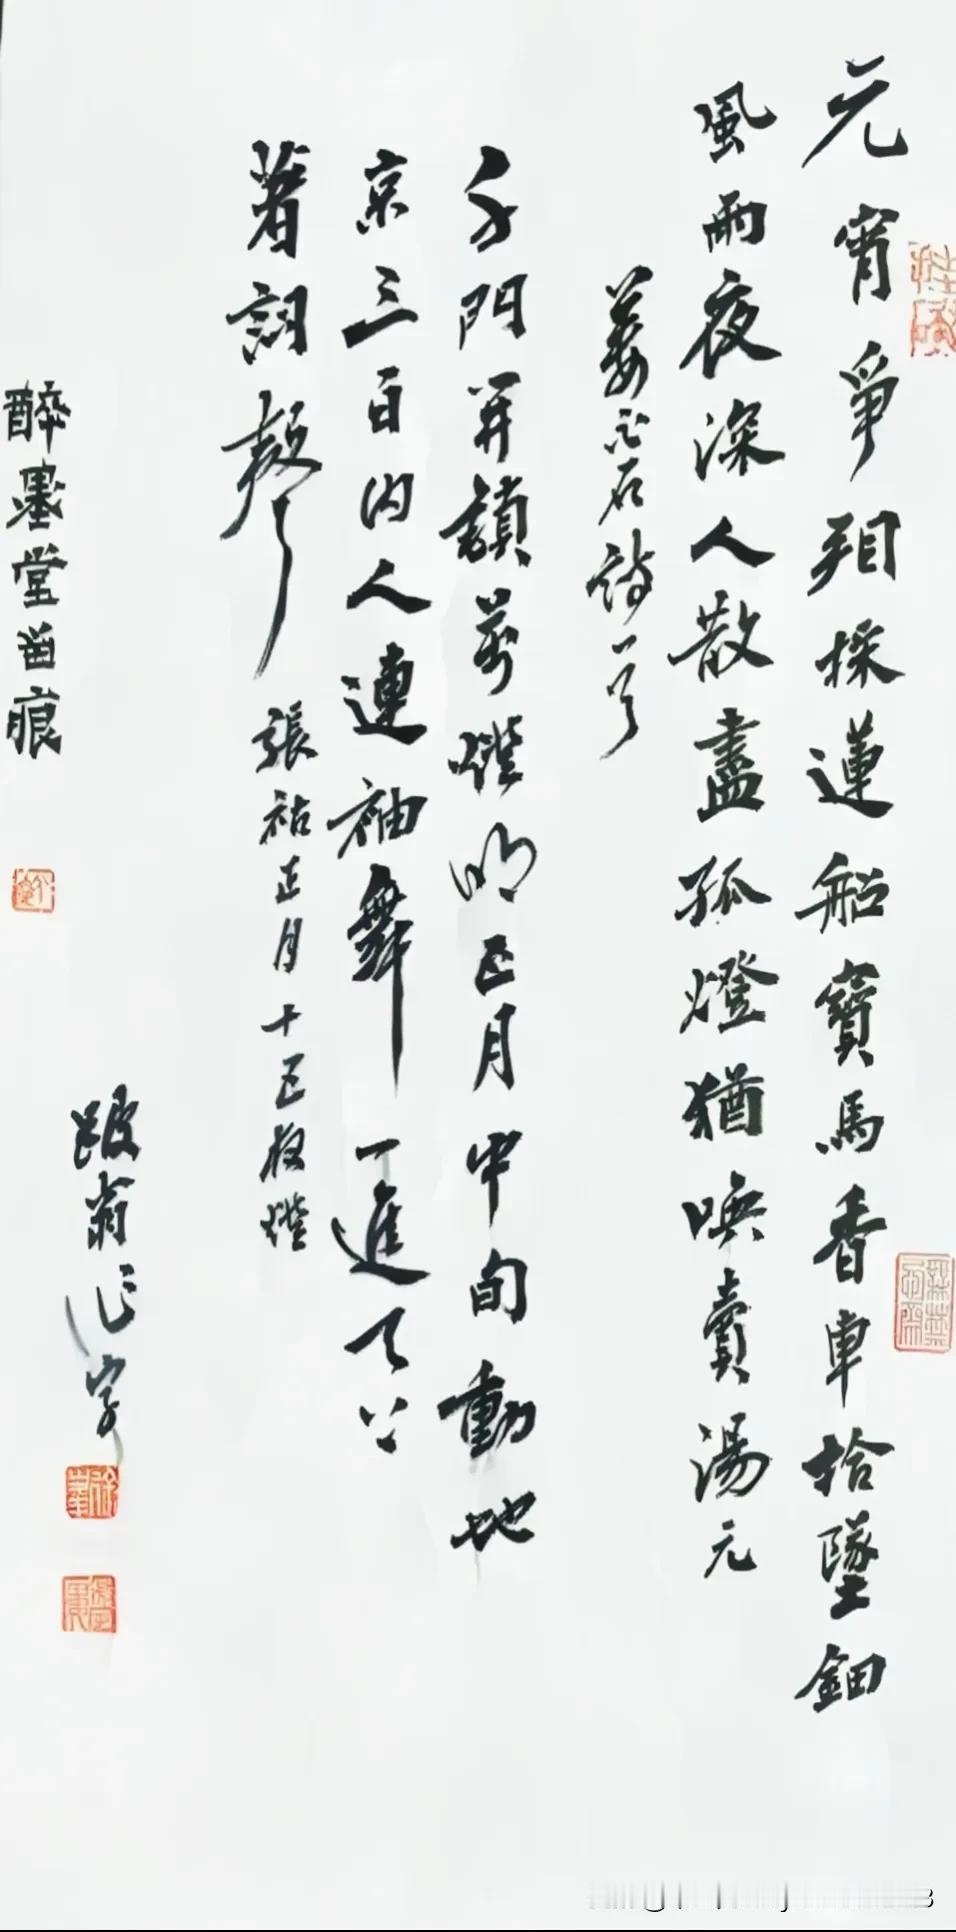 元宵爭看採蓮船寶馬香車拾墜鈿
風雨夜深人散盡孤燈猶喚賣湯元
姜白石詩一首
千門開鎖萬燈明正月中旬動地
京三百内人連袖舞一進天上
著詞聲 張祜正月十五夜燈
跛翁作字
醉墨堂留痕